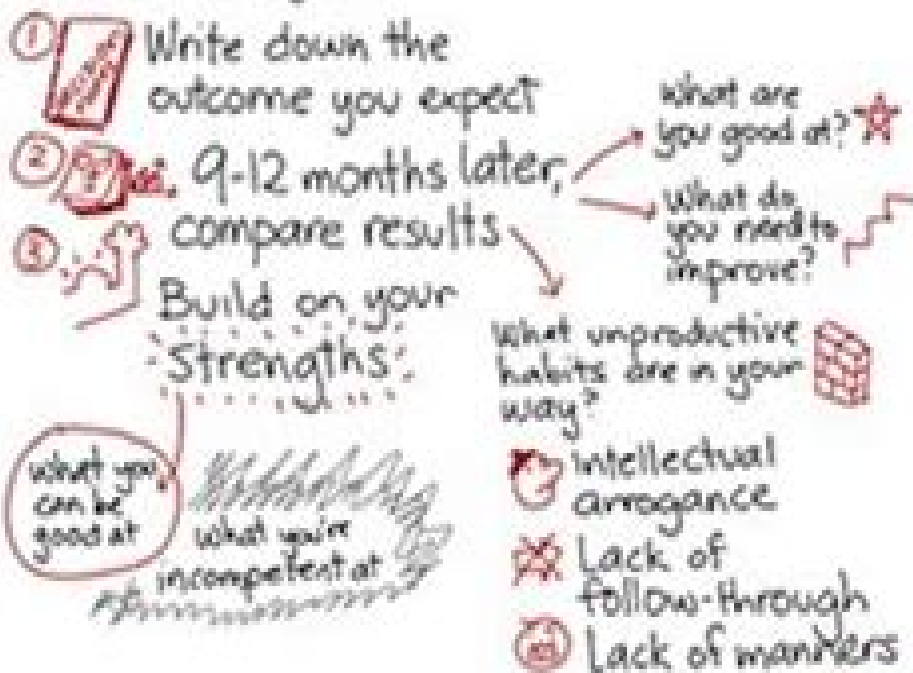 1
Write down the
outcome you expect
2
9-12 months later,
compare results
3
Build on your
Strengths
What are
you good at?
What do
you need to
improve?
What unproductive
habits are in your
way?
Intellectual
arrogance
Lack of
follow-through
Lack of manners
what you
can be
good at
what you're
incompetent at